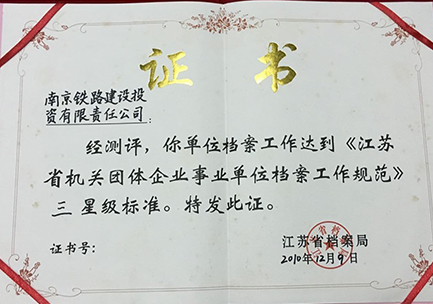 证书
南京铁路建设投
资有限责任公司：
经测评，你单位档案工作达到《江苏
省机关团体企业事业单位档案工作规范》
三 星级标准。特发此证。
证书号：
江苏省档案局
2010年12月9日